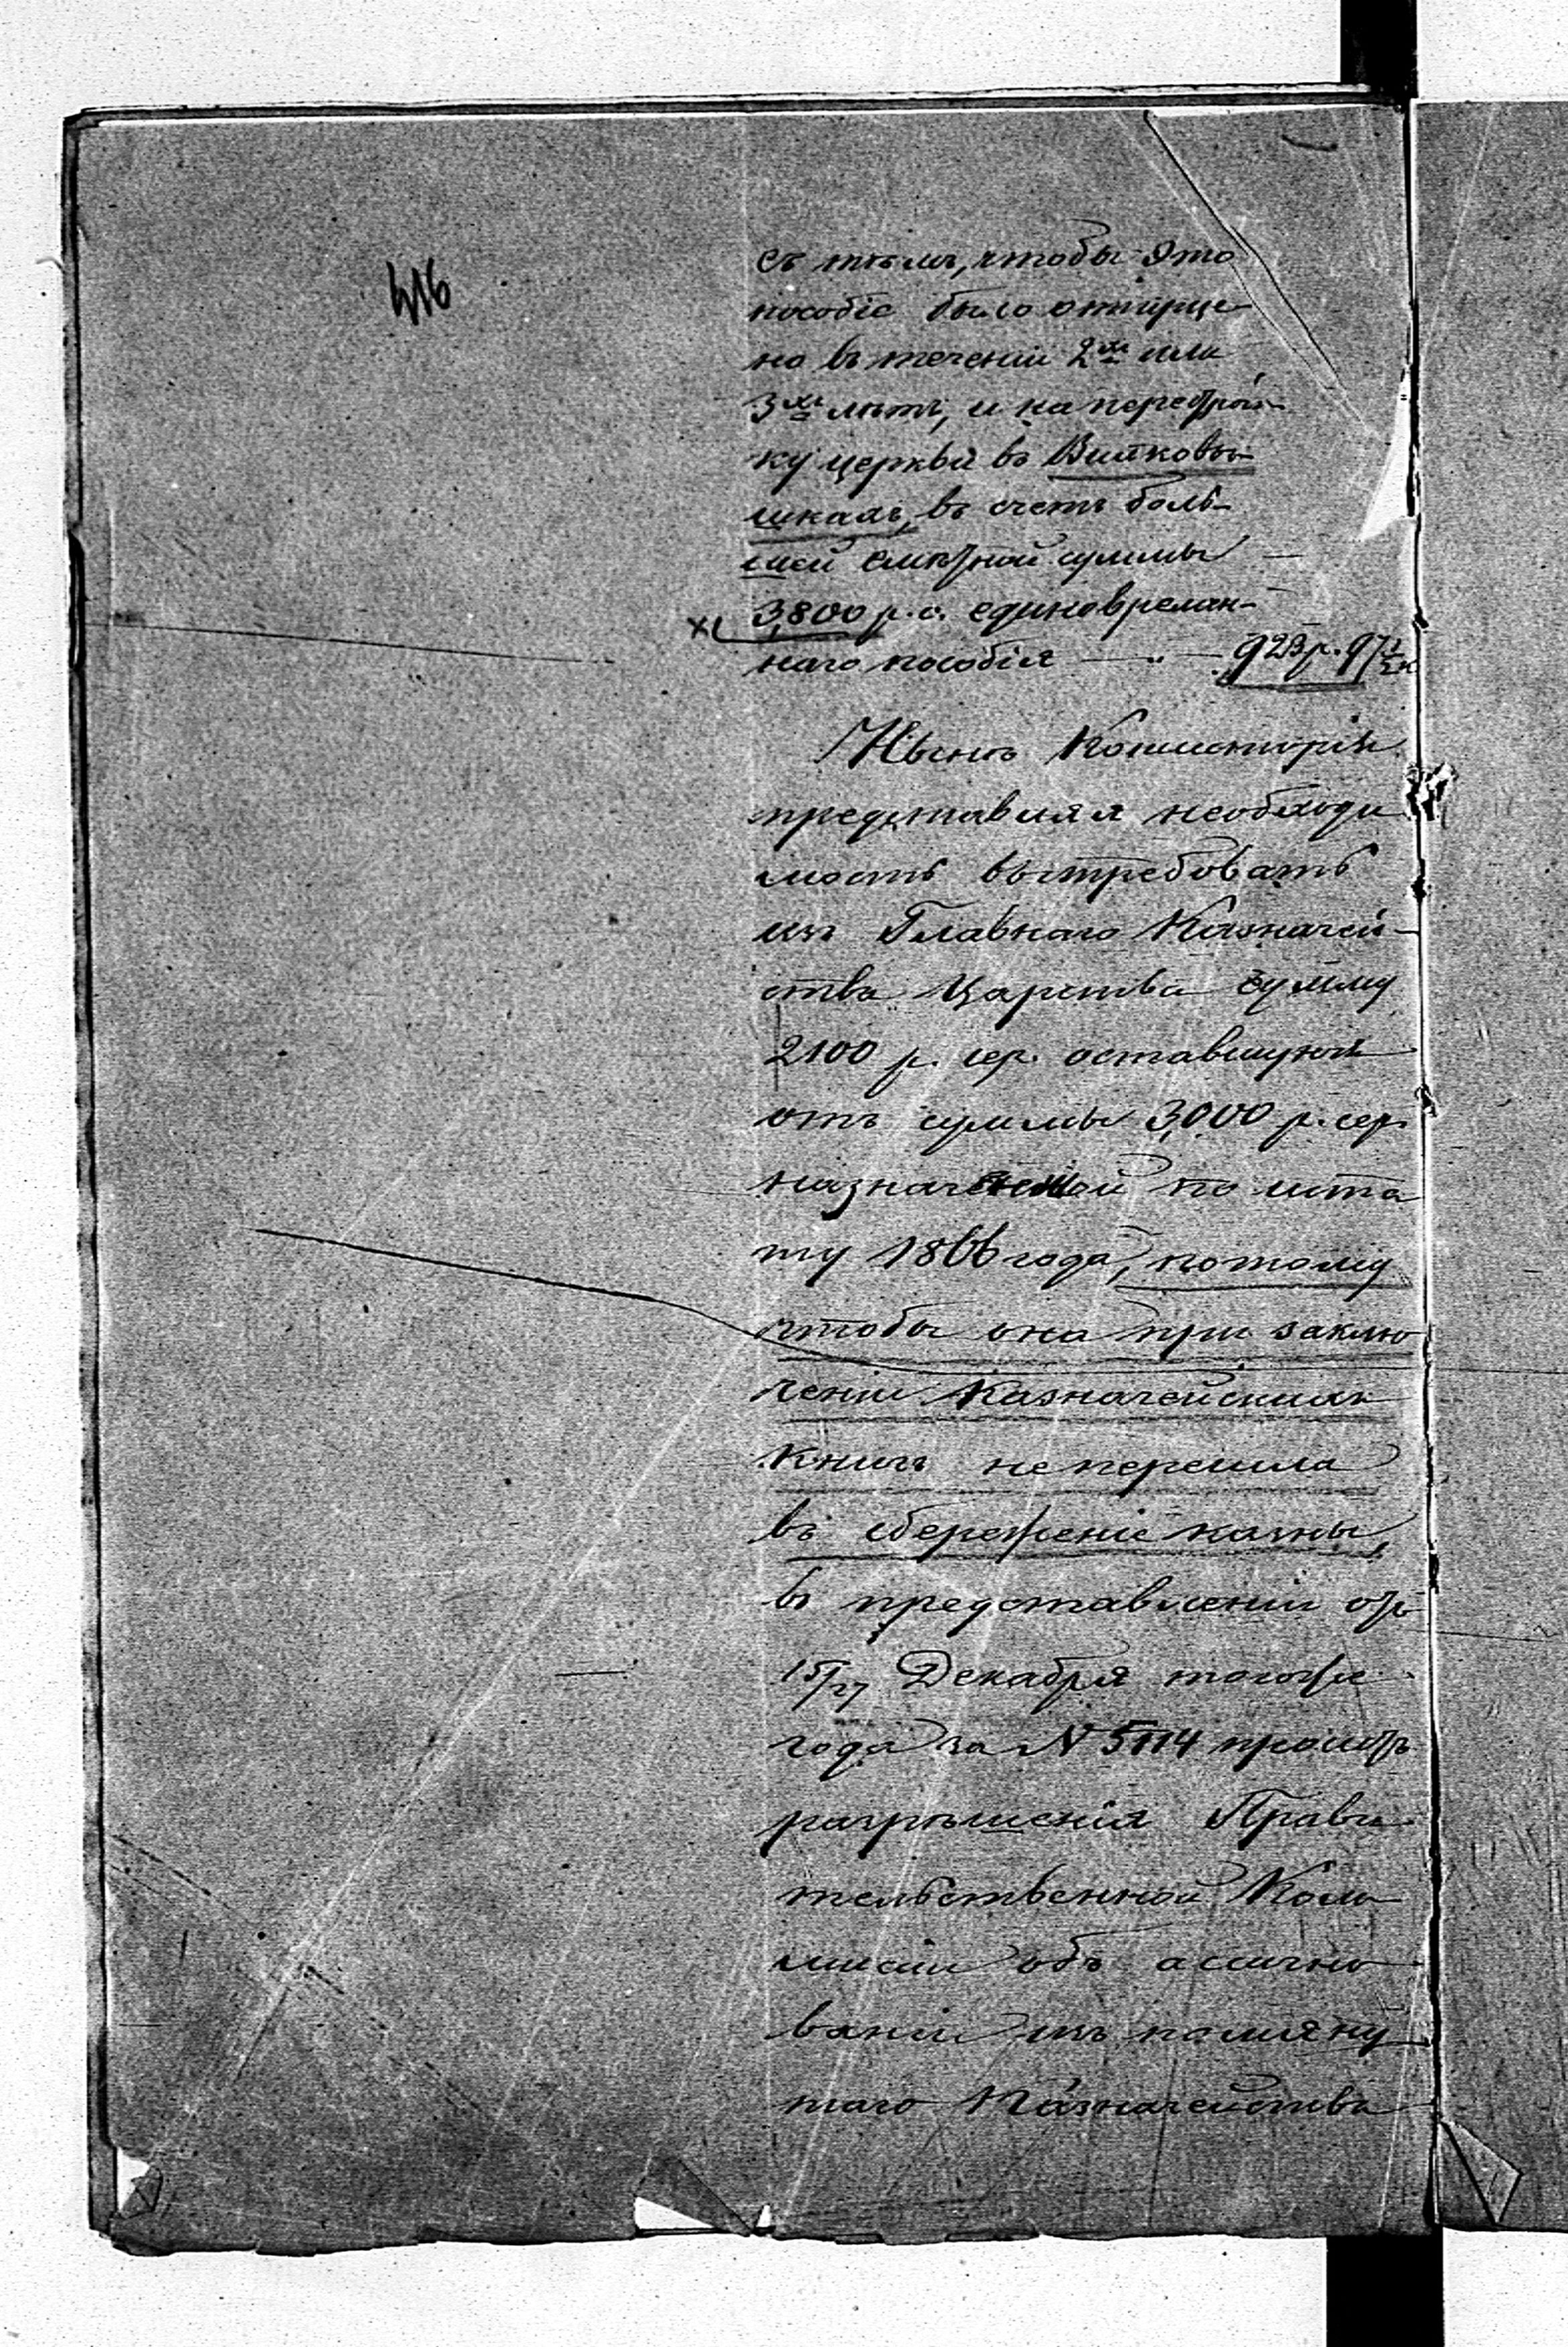 416
съ тѣмъ, чтобы это
пособіе было отпуще
но въ теченіи 2хъ или
3хъ лѣтъ, и на перестрой-
ку церкви въ Вилковы-
шкахъ, въ счетъ боль-
шей смѣтной суммы —
3,800 р. с. единовремен-
наго пособія — " — 923 р. 97 1/2 к
Нынѣ Консисторія
представляя необходи
мость вытребовать
изъ Главнаго Казначей-
ства Царства сумму
2100 р. сер. оставшуюся
отъ суммы 3,000 р. сер.
назначенной по шта
ту 1866 года, потому
чтобы она при заклю
ченіи Казначейскихъ
книгъ неперешла
въ сбереженіе казны,
въ представленіи отъ
15/27 Декабря тогоже
года за N 5114 проситъ
разрѣшенія Прави
тельственной Ком
мисіи объ ассигно
ваніи изъ помяну
таго Казначейства